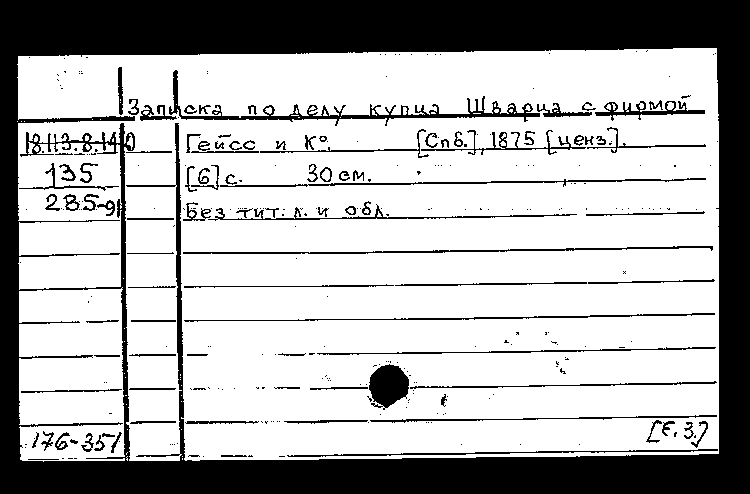 Записка по делу купца Шварца с фирмой
18.113.8.140 Гейсс и К°. [Спб.], 1875 [ценз.].
135 [6] с. 30 см.
285-91 Без тит. л. и обл.
176-351 [Е.З.]